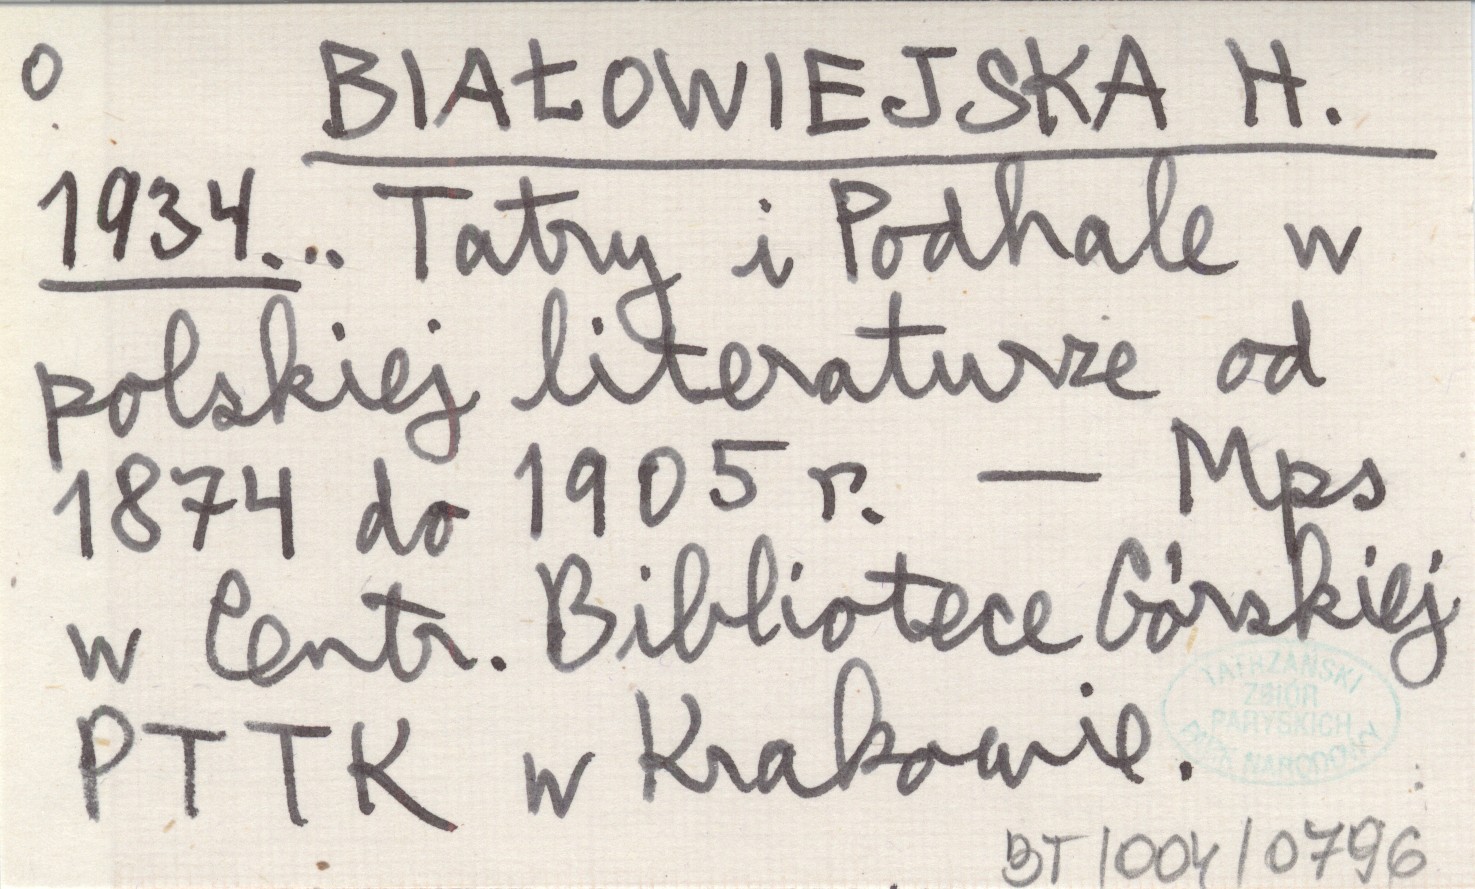 O BIAŁOWIEJSKA H.
1934... Tatry i Podhale w
polskiej literaturze od
1874 do 1905 r. — Mps
w Centr. Bibliotece Górskiej
PTTK w Krakowie.
TATRZAŃSKI
ZBIÓR
PARYSKICH
NARODOWY
BT/004/0796